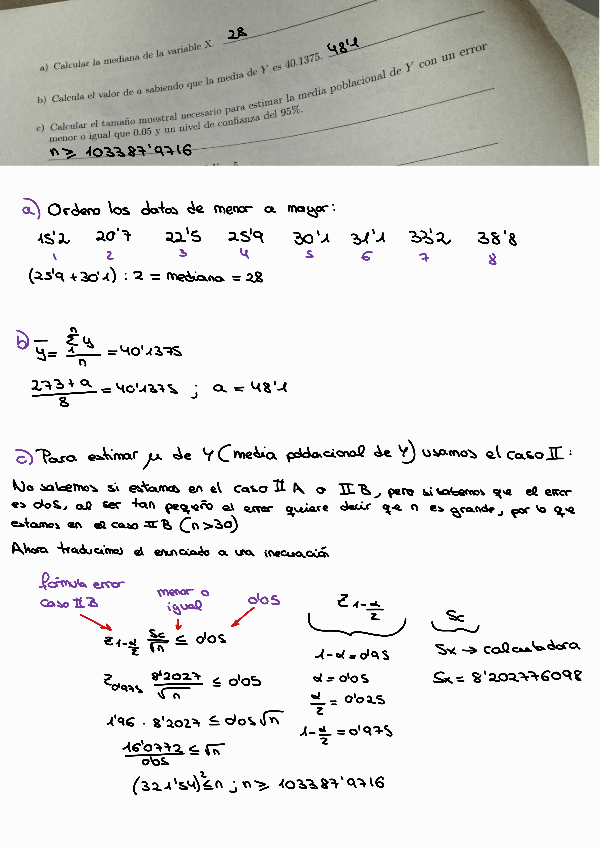 28
a) Calcular la mediana de la variable X.
48'1
b) Calcula el valor de a sabiendo que la media de Y es 40.1375.
c) Calcular el tamaño muestral necesario para estimar la media poblacional de Y con un error
menor o igual que 0.05 y un nivel de confianza del 95%.
n ≥ 103387'9716
a) Ordeno los datos de menor a mayor:
15'2 20'7 22'5 25'9 30'1 31'1 33'2 38'8
1 2 3 4 5 6 7 8
(25'9 + 30'1) : 2 = mediana = 28
b) ȳ = Σ₁ⁿ y / n = 40'1375
273 + a / 8 = 40'1375 ; a = 48'1
c) Para estimar μ de Y (media poblacional de Y) usamos el caso II:
No sabemos si estamos en el caso II A o II B, pero si sabemos que el error
es 0'05, al ser tan pequeño el error quiere decir que n es grande, por lo que
estamos en el caso II B (n > 30)
Ahora traducimos el enunciado a una inecuación
fórmula error caso II B
menor o igual
0'05
Z 1-α/2 Sc/√n ≤ 0'05
Z 0'975 8'2027/√n ≤ 0'05
1'96 · 8'2027 ≤ 0'05 √n
16'0772/0'05 ≤ √n
(321'54)² ≤ n ; n ≥ 103387'9716
Z 1-α/2
1-α = 0'95
α = 0'05
α/2 = 0'025
1-α/2 = 0'975
Sc
Sx → calculadora
Sx = 8'202776098